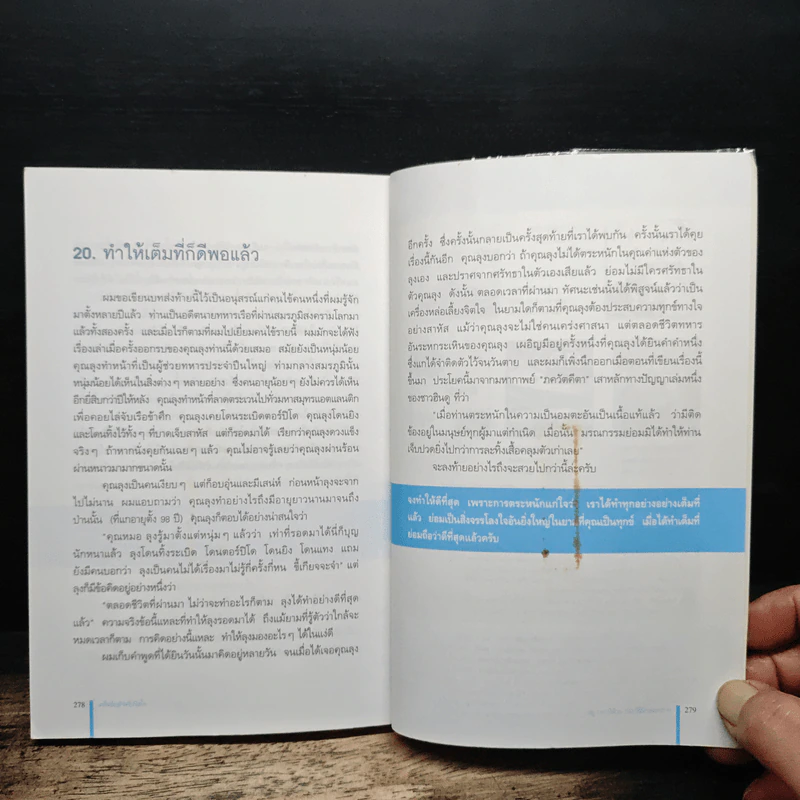 20. ทำให้เต็มที่ก็ดีพอแล้ว
ผมขอเขียนบทส่งท้ายนี้ไว้เป็นอนุสรณ์แก่คนไข้คนหนึ่งที่ผมรู้จัก
มาตั้งหลายปีแล้ว ท่านเป็นอดีตนายทหารเรือที่ผ่านสมรภูมิสงครามโลกมา
แล้วทั้งสองครั้ง และเมื่อไรก็ตามที่ผมไปเยี่ยมคนไข้รายนี้ ผมมักจะได้ฟัง
เรื่องเล่าเมื่อครั้งออกรบของคุณลุงท่านนี้ด้วยเสมอ สมัยยังเป็นหนุ่มน้อย
คุณลุงทำหน้าที่เป็นผู้ช่วยทหารประจำปืนใหญ่ ท่ามกลางสมรภูมินั้น
หนุ่มน้อยได้เห็นในสิ่งต่างๆ หลายอย่าง ซึ่งคนอายุน้อยๆ ยังไม่ควรได้เห็น
อีกยี่สิบกว่าปีให้หลัง คุณลุงทำหน้าที่ลาดตระเวนไปทั่วมหาสมุทรแอตแลนติก
เพื่อคอยไล่จับเรือข้าศึก คุณลุงเคยโดนระเบิดตอร์ปิโด คุณลุงโดนยิง
และโดนทิ้งไว้ทั้งๆ ที่บาดเจ็บสาหัส แต่ก็รอดมาได้ เรียกว่าคุณลุงดวงแข็ง
จริงๆ ถ้าหากนั่งคุยกันเฉยๆ แล้ว คุณไม่อาจรู้เลยว่าคุณลุงผ่านร้อน
ผ่านหนาวมามากขนาดนั้น
คุณลุงเป็นคนเงียบๆ แต่ก็อบอุ่นและมีเสน่ห์ ก่อนหน้าลุงจะจาก
ไปไม่นาน ผมแอบถามว่า คุณลุงทำอย่างไรถึงมีอายุยาวนานมาจนถึง
ป่านนั้น (ที่แกอายุตั้ง 98 ปี) คุณลุงก็ตอบได้อย่างน่าสนใจว่า
"คุณหมอ ลุงรู้มาตั้งแต่หนุ่มๆ แล้วว่า เท่าที่รอดมาได้นี่ก็บุญ
นักหนาแล้ว ลุงโดนทิ้งระเบิด โดนตอร์ปิโด โดนยิง โดนแทง แถม
ยังมีคนบอกว่า ลุงเป็นคนไม่ได้เรื่องมาไม่รู้กี่ครั้งกี่หน ขี้เกียจจะจำ" แต่
ลุงก็มีข้อคิดอยู่อย่างหนึ่งว่า
"ตลอดชีวิตที่ผ่านมา ไม่ว่าจะทำอะไรก็ตาม ลุงได้ทำอย่างดีที่สุด
แล้ว" ความจริงข้อนี้แหละที่ทำให้ลุงรอดมาได้ ถึงแม้ยามที่รู้ตัวว่าใกล้จะ
หมดเวลาก็ตาม การคิดอย่างนี้แหละ ทำให้ลุงมองอะไรๆ ได้ในแง่ดี
ผมเก็บคำพูดที่ได้ยินวันนั้นมาคิดอยู่หลายวัน จนเมื่อได้เจอคุณลุง
278
อีกครั้ง ซึ่งครั้งนั้นกลายเป็นครั้งสุดท้ายที่เราได้พบกัน ครั้งนั้นเราได้คุย
เรื่องนี้กันอีก คุณลุงบอกว่า ถ้าคุณลุงไม่ได้ตระหนักในคุณค่าแห่งตัวของ
ลุงเอง และปราศจากศรัทธาในตัวเองเสียแล้ว ย่อมไม่มีใครศรัทธาใน
ตัวคุณลุง ดังนั้น ตลอดเวลาที่ผ่านมา ทัศนะเช่นนั้นได้พิสูจน์แล้วว่าเป็น
เครื่องหล่อเลี้ยงจิตใจ ในยามใดก็ตามที่คุณลุงต้องประสบความทุกข์ทางใจ
อย่างสาหัส แม้ว่าคุณลุงจะไม่ใช่คนเคร่งศาสนา แต่ตลอดชีวิตทหาร
อันระหกระเหินของคุณลุง เผอิญมีอยู่ครั้งหนึ่งที่คุณลุงได้ยินคำคำหนึ่ง
ซึ่งแกได้จำติดตัวไว้จนวันตาย และผมก็เพิ่งนึกออกเมื่อตอนที่เขียนเรื่องนี้
ขึ้นมา ประโยคนี้มาจากมหากาพย์ "ภควัตคีตา" เสาหลักทางปัญญาเล่มหนึ่ง
ของชาวฮินดู ที่ว่า
"เมื่อท่านตระหนักในความเป็นอมตะอันเป็นเนื้อแท้แล้ว ว่ามีติด
ข้องอยู่ในมนุษย์ทุกผู้มาแต่กำเนิด เมื่อนั้น มรณกรรมย่อมมิได้ทำให้ท่าน
เจ็บปวดยิ่งไปกว่าการละทิ้งเสื้อคลุมตัวเก่าเลย"
จะลงท้ายอย่างไรถึงจะสวยไปกว่านี้ล่ะครับ
จงทำให้ดีที่สุด เพราะการตระหนักแก่ใจว่า เราได้ทำทุกอย่างอย่างเต็มที่
แล้ว ย่อมเป็นสิ่งจรรโลงใจอันยิ่งใหญ่ในยามที่คุณเป็นทุกข์ เมื่อได้ทำเต็มที่
ย่อมถือว่าดีที่สุดแล้วครับ
279